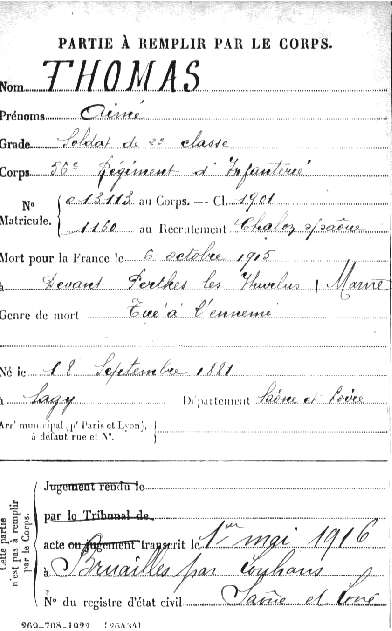 PARTIE À REMPLIR PAR LE CORPS.
Nom THOMAS
Prénoms Aimé
Grade Soldat de 2e classe
Corps 56e Régiment d'Infanterie
N° Matricule. { c 13113 au Corps. — Cl. 1901
1160 au Recrutement Chalon s/Saône
Mort pour la France le 6 octobre 1915
à Devant Perthes les Hurlus (Marne
Genre de mort Tué à l'ennemi
Né le 12 Septembre 1881
à Sagy Département Saône et Loire
Arrt municipal (pr Paris et Lyon),
à défaut rue et N°.
Cette partie n'est pas à remplir par le Corps.
Jugement rendu le
par le Tribunal de
acte ou jugement transcrit le 1er mai 1916
à Bruailles par Louhans
N° du registre d'état civil Saône et Loire